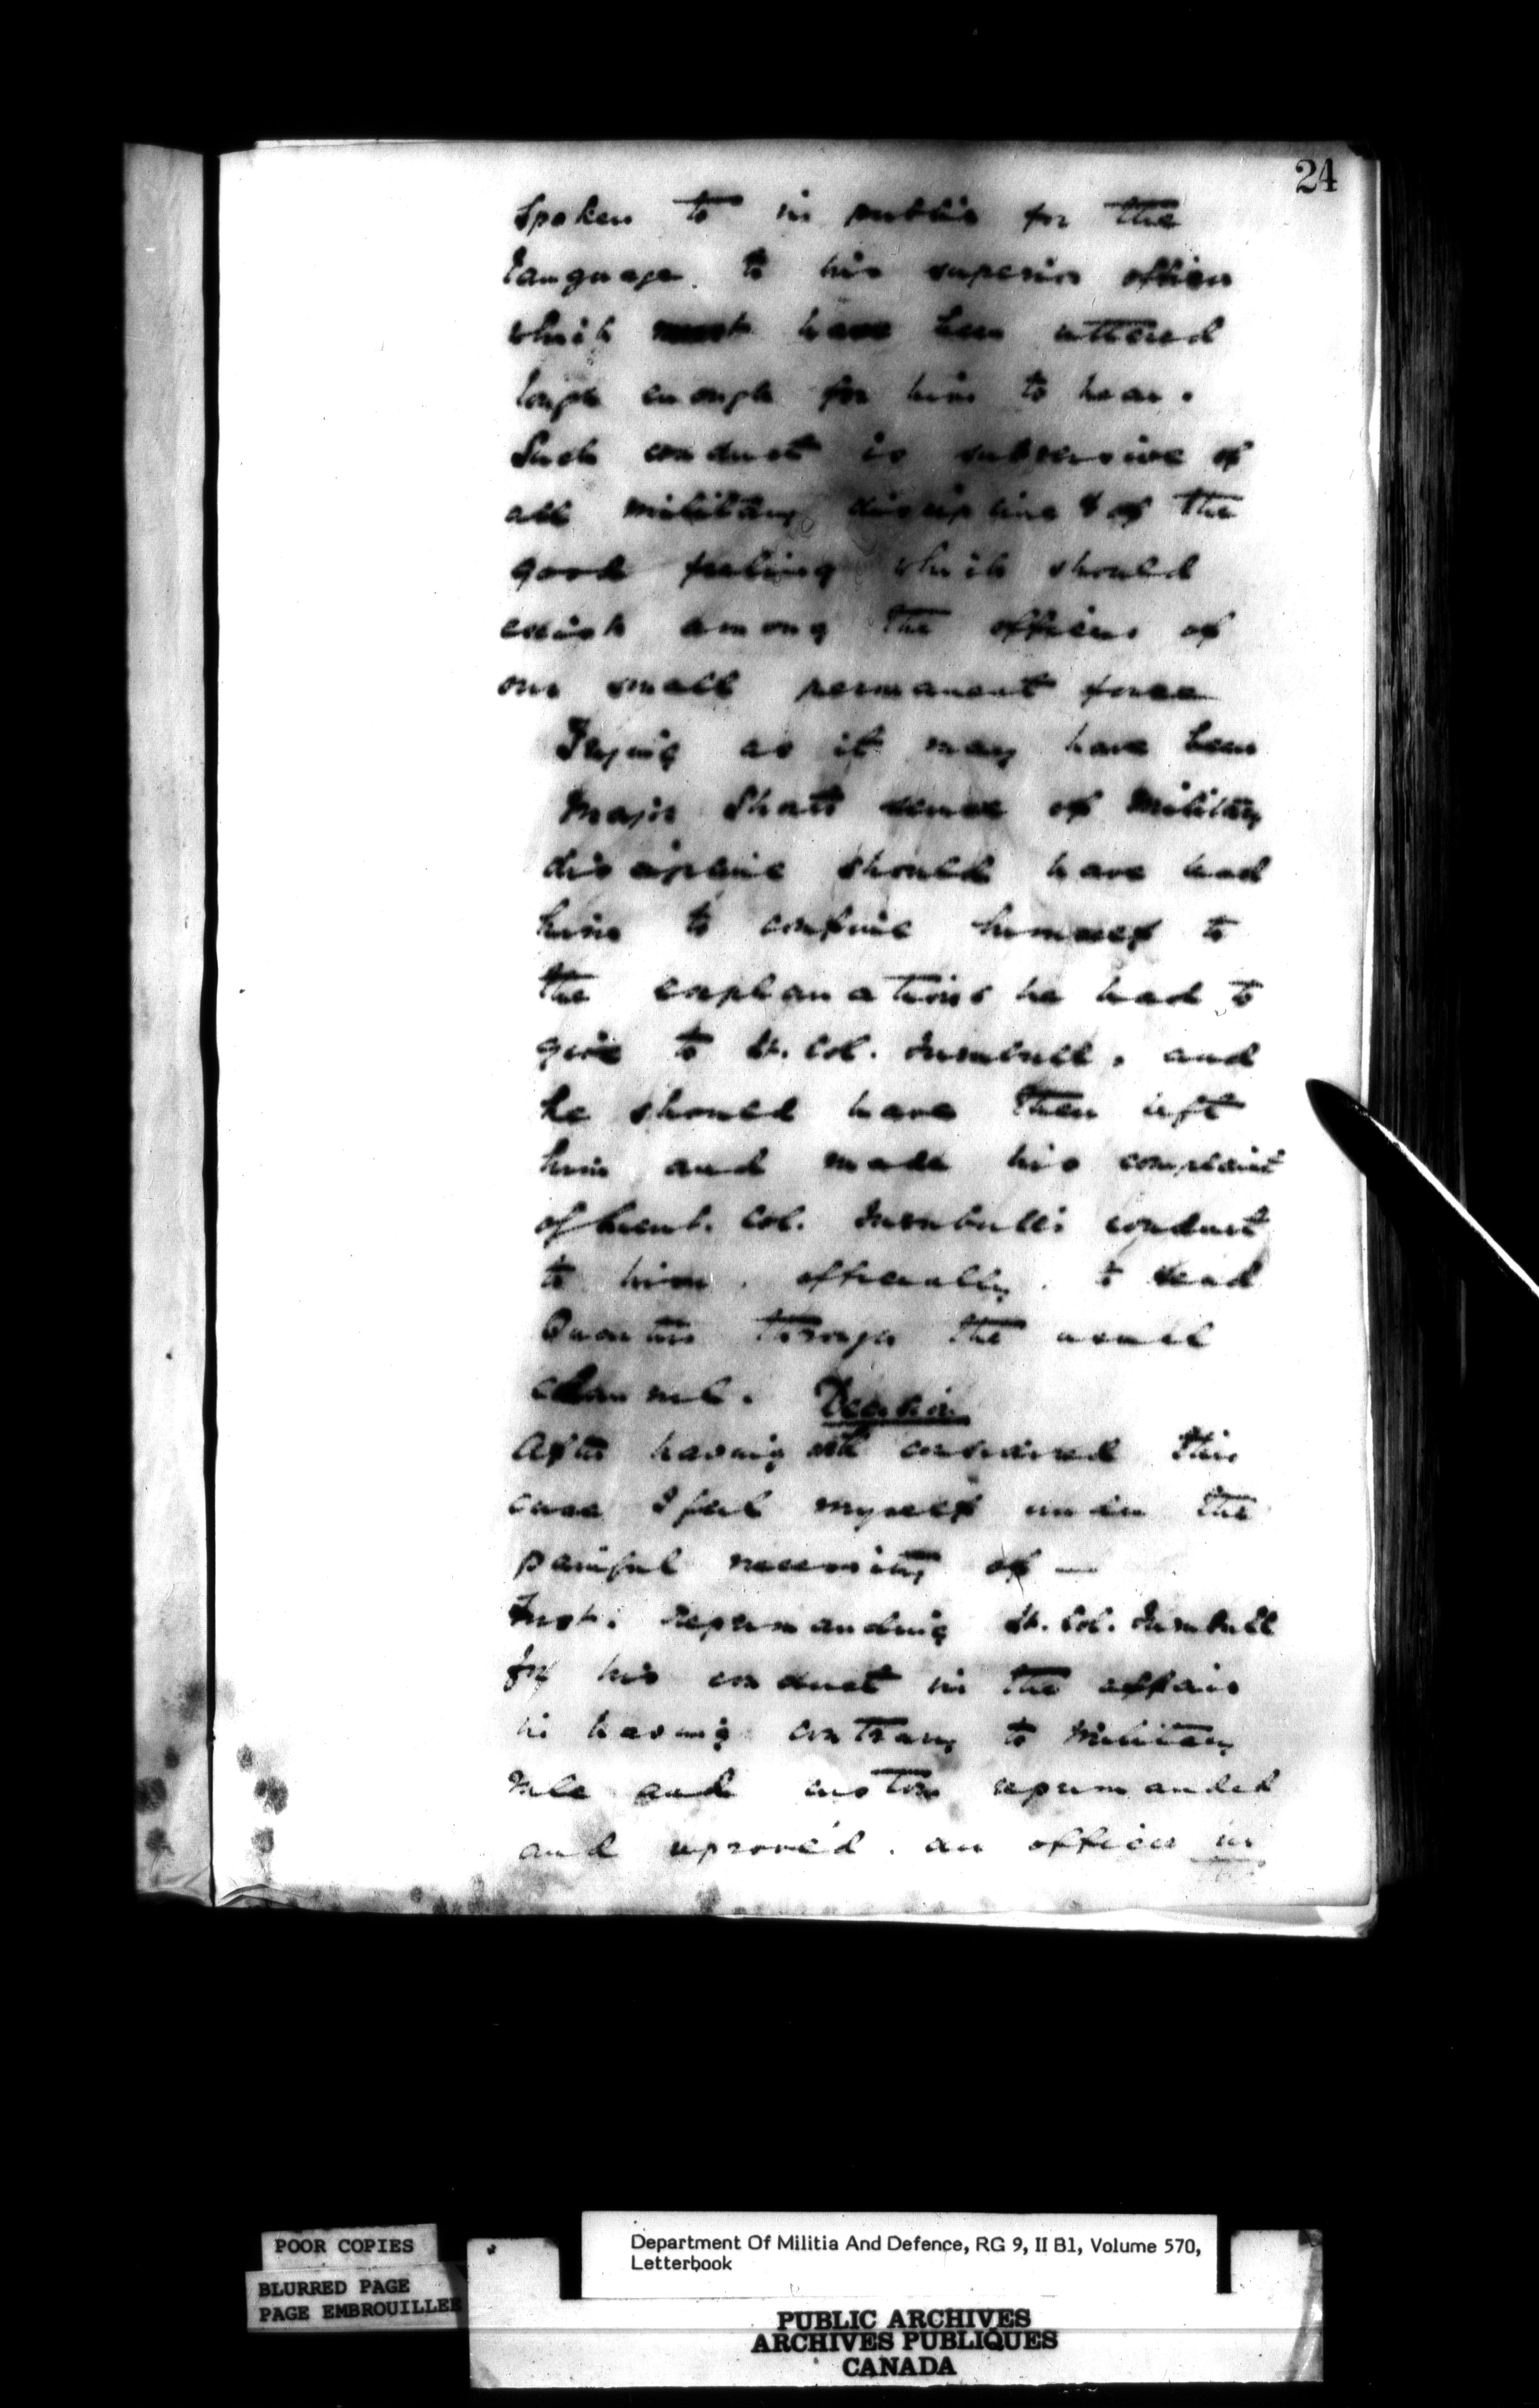 24
spoken to in public for the
language to his superior officer
which must have been uttered
enough for him to hear.
Such conduct is subversive of
all military discipline & of the
good feeling which should
exist among the officers of
our small permanent force
Trying as it may have been
Major Shorts sense of Military
discipline should have led
him to confine himself to
the explanations he had to
give to Lt. Col. Turnbull, and
he should have then left
him and made his complaint
of Lieut. Col. Turnbull's conduct
to him officially to Head
Quarters through the usual
channel. Decision
After having well considered this
case I feel myself under the
painful necessity of —
First. reprimanding Lt. Col. Turnbull
for his conduct in the affair
in having contrary to Military
rule and custom reprimanded
and reproved. an officer in
POOR COPIES
BLURRED PAGE
PAGE EMBROUILLEE
Department Of Militia And Defence, RG 9, II B1, Volume 570,
Letterbook
PUBLIC ARCHIVES
ARCHIVES PUBLIQUES
CANADA